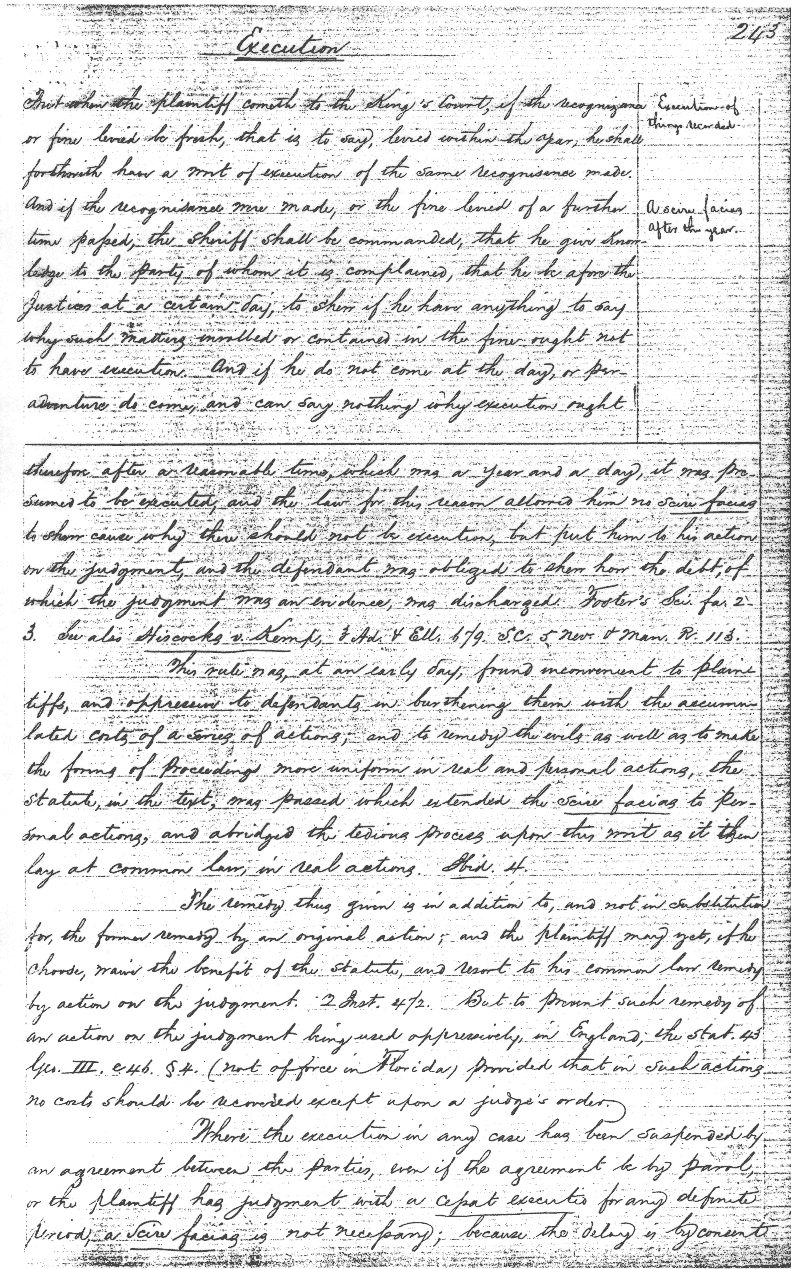 243
Execution
But when the plaintiff cometh to the King's Court, if the recognizance
Execution of
things recorded.
or fine levied be fresh, that is to say, levied within the year, he shall
forthwith have a writ of execution of the same recognisance made.
And if the recognisance were made, or the fine levied of a further
A scire facias
after the year.
time passed, the sheriff shall be commanded, that he give know-
ledge to the party of whom it is complained, that he be afore the
Justices at a certain day, to shew if he have anything to say
why such matters inrolled or contained in the fine ought not
to have execution. And if he do not come at the day, or per-
adventure do come, and can say nothing why execution ought
therefore after a reasonable time, which was a year and a day, it was pre-
sumed to be executed, and the law for this reason allowed him no scire facias
to shew cause why there should not be execution, but put him to his action
on the judgment, and the defendant was obliged to shew how the debt, of
which the judgment was an evidence, was discharged. Foster's Sci. fa. 2-
3. See also Hiscocks v. Kemp, 3 Ad. & Ell. 679. S.C. 5 Nev. & Man. R. 113.
This rule was, at an early day, found inconvenient to plain-
tiffs, and oppressive to defendants in burthening them with the accumu-
lated costs of a series of actions; and to remedy the evils as well as to make
the forms of Proceeding more uniform in real and personal actions, the
statute, in the text, was passed which extended the scire facias to per-
sonal actions, and abridged the tedious process upon this writ as it then
lay at common law, in real actions. Ibid. 4.
The remedy thus given is in addition to, and not in substitution
for, the former remedy by an original action; and the plaintiff may yet, if he
choose, waive the benefit of the statute, and resort to his common law remedy
by action on the judgment. 2 Inst. 472. But to prevent such remedy of
an action on the judgment being used oppressively, in England, the Stat. 43
Geo. III. c 46. § 4. (not of force in Florida) provided that in such actions
no costs should be recovered except upon a judge's order.
Where the execution in any case has been suspended by
an agreement between the parties, even if the agreement be by parol,
or the plaintiff has judgment with a cessat executio for any definite
period, a scire facias is not necessary; because the delay is by consent